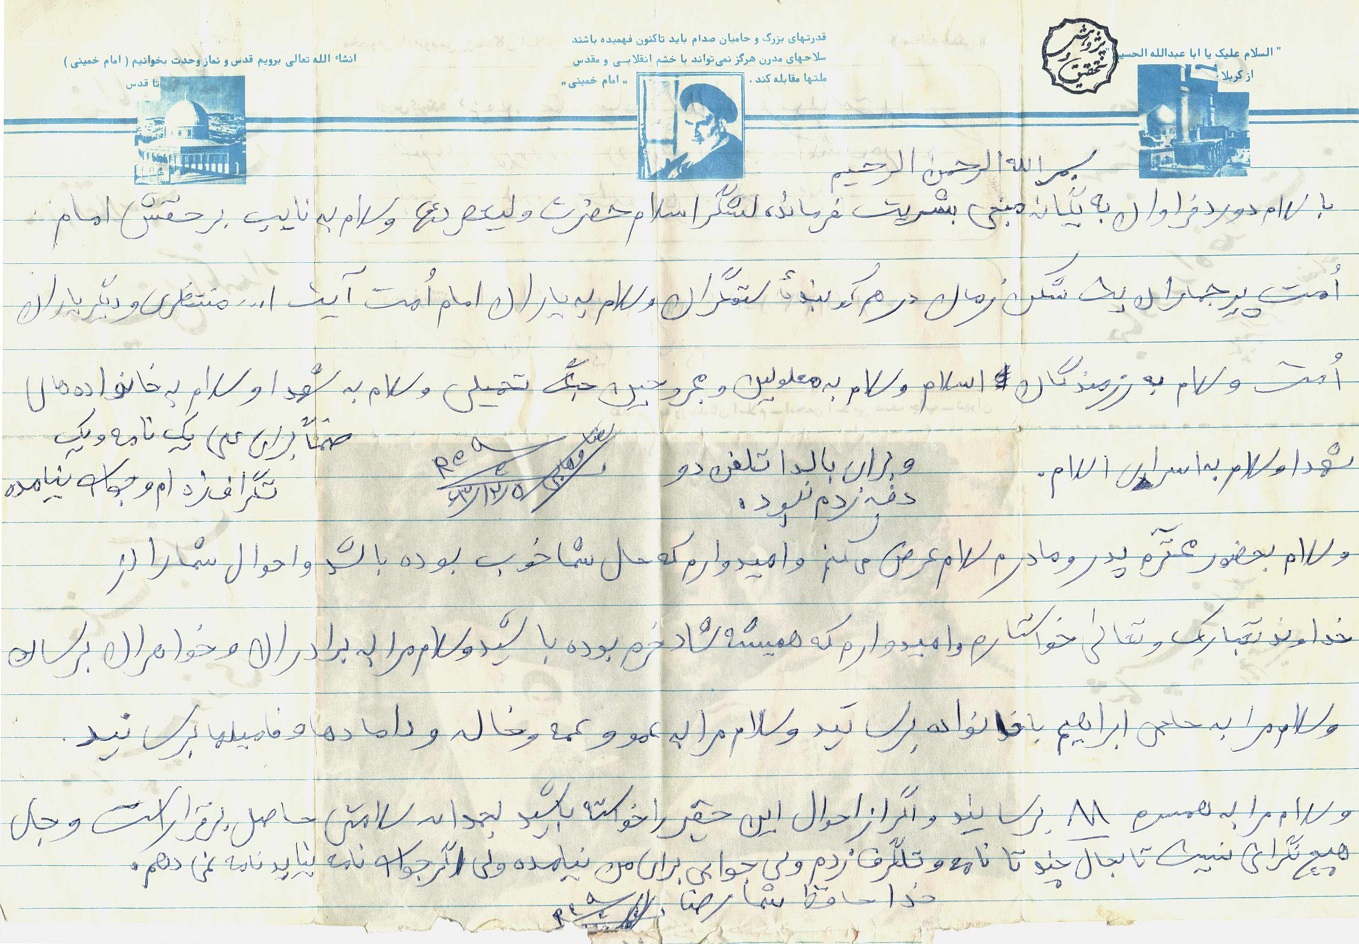 قدرتهای بزرگ و حامیان صدام باید تاکنون فهمیده باشند
سلاحهای مدرن هرگز نمی‌تواند با خشم انقلابی و مقدس
ملتها مقابله کند. " امام خمینی"
" السلام علیک یا ابا عبدالله الحسین
از کربلا
پژوهش و تحقیق
انشاء الله تعالی برویم قدس و نماز وحدت بخوانیم ( امام خمینی )
تا قدس
بسم الله الرحمن الرحیم
با سلام و درود فراوان به یگانه منجی بشریت فرمانده لشگر اسلام حضرت ولیعصر (عج) و سلام به نایب بر حقش امام
اُمت پیر جماران بت شکن زمان در هم کوبنده ستمگران و سلام به یاران امام اُمت آیت ا... منتظری و دیگر یاران
اُمت و سلام به رزمندگان اسلام و سلام به معلولین و مجروحین جنگ تحمیلی و سلام به شهدا و سلام به خانواده های
شهدا و سلام به اسرای اسلام.
و برای بالدا تلفن دو
دفعه زدم نبود.
رضا
۶۳/۱۲/۵
ضمناً برای علی یک نامه و یک
تلگراف زده ام و جواب نیامده
و سلام بحضور محترم پدر و مادرم سلام عرض می کنم و امیدوارم که حال شما خوب بوده باشد و احوال شما را از
خداوند تبارک و تعالی خواستارم و امیدوارم که همیشه شاد خرم بوده باشید و سلام مرا به برادران و خواهران برسان
و سلام مرا به حاجی ابراهیم با خانواده برسانید و سلام مرا به عمو و عمه و خاله و دامادها و فامیلها برسانید.
و سلام مرا به همسرم برسانید و اگر از احوال این حقیر را خواسته باشید بحمداله سلامتی حاصل برقرار است و جای
هیچ نگرانی نیست تا بحال چند تا نامه و تلگراف زدم ولی جوابی برای من نیامده ولی اگر جواب نامه نیاید نامه نمی دهم.
خدا حافظ شما رضا